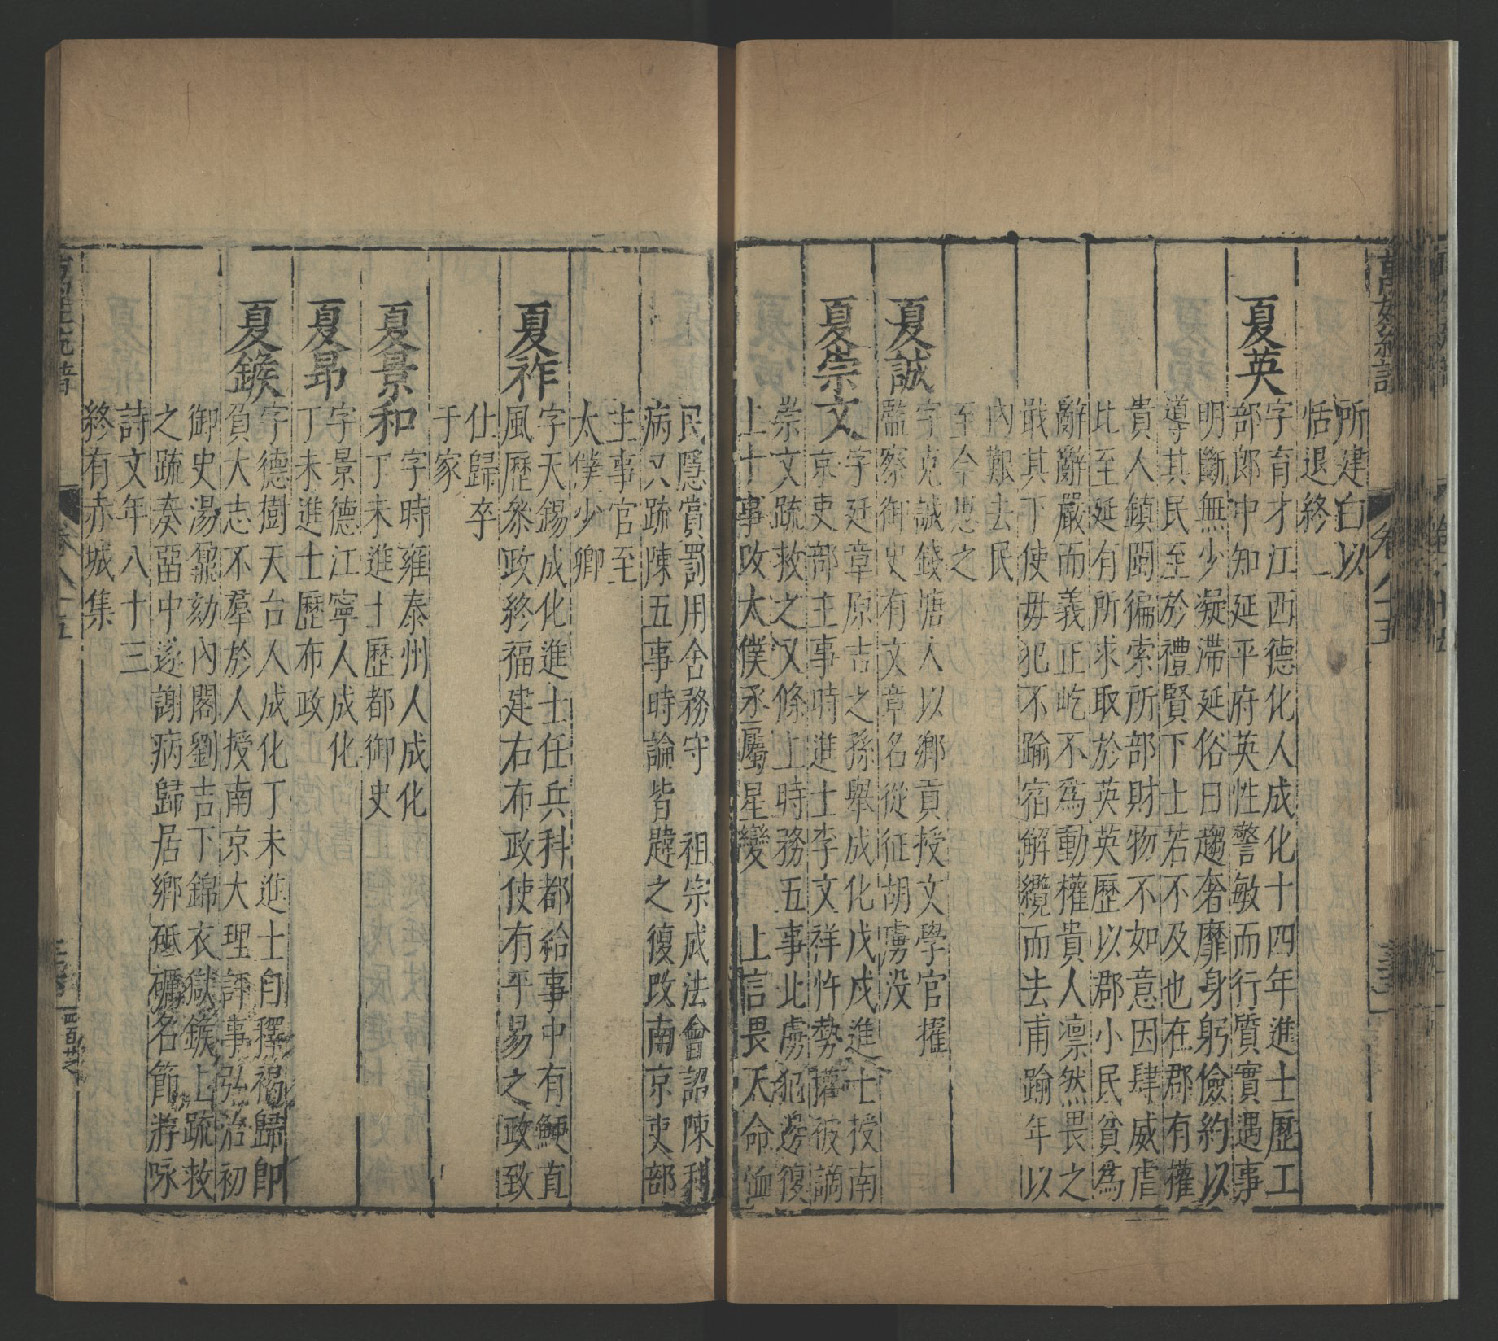 萬姓統譜
卷八十五
所建白以
恬退終
夏英
字育才江西德化人成化十四年進士歷工
部郎中知延平府英性警敏而行質實遇事
明斷無少凝滯延俗日趨奢靡身躬儉約以
導其民至於禮賢下士若不及也在郡有權
貴人鎮閩徧索所部財物不如意因肆威虐
比至延有所求取於英英歷以郡小民貧為
辭辭嚴而義正屹不為動權貴人凛然畏之
戢其下使毋犯不踰宿解纜而去甫踰年以
內艱去民
至今思之
夏誠
字克誠錢塘人以鄉貢授文學官擢
監察御史有文章名從征胡虜没
夏崇文
字廷章原吉之孫舉成化戊戌進士授南
京吏部主事時進士李文祥忤勢權被謫
崇文疏救之又條上時務五事北虜犯邊復
上十事改太僕丞屬星變 上言畏天命恤
民隱賞罰用舍務守 祖宗成法會詔陳利
病又疏陳五事時論皆韙之復改南京吏部
主事官至
太僕少卿
夏祚
字天錫成化進士任兵科都給事中有鯁直
風歷叅政終福建右布政使有平易之政致
仕歸卒
于家
夏景和
字時雍泰州人成化
丁未進士歷都御史
夏昂
字景德江寧人成化
丁未進士歷布政
夏鍭
字德樹天台人成化丁未進士自釋褐歸即
負大志不羣於人授南京大理評事弘治初
御史湯鼐劾內閣劉吉下錦衣獄鍭上疏救
之疏奏留中遂謝病歸居鄉砥礪名節游咏
詩文年八十三
終有赤城集
萬姓統譜
卷八十五